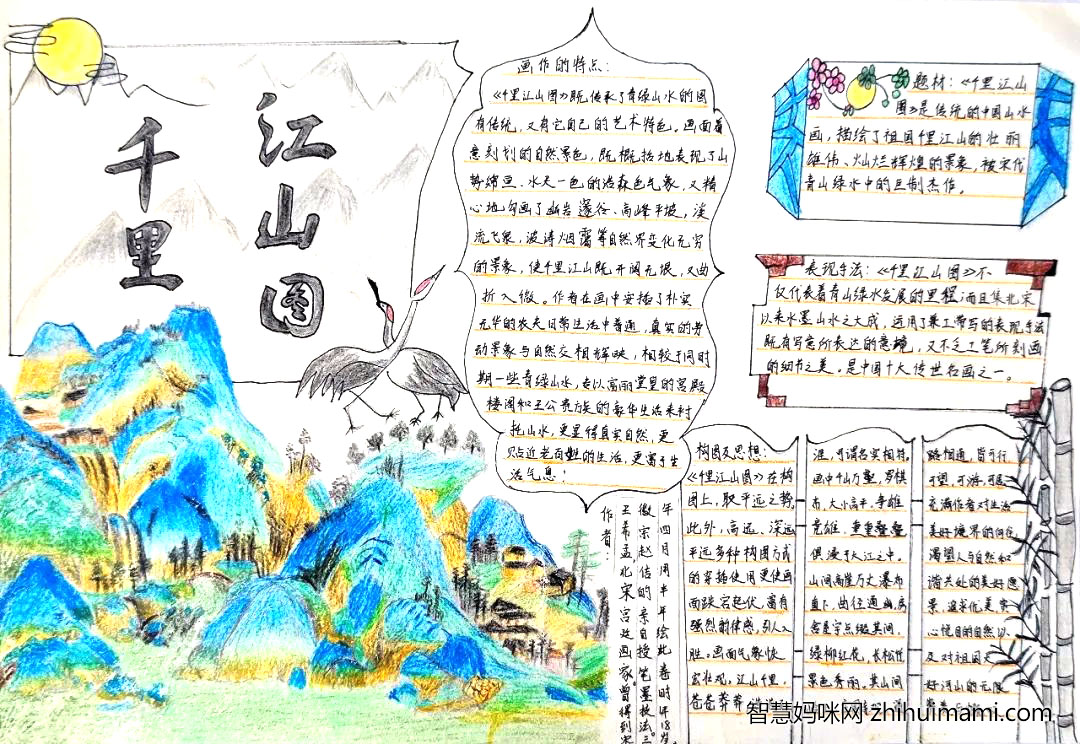 千里
江山图
画作的特点:
《千里江山图》既传承了青绿山水的固
有传统,又有它自己的艺术特色。画面着
意刻划的自然景色,既概括地表现了山
势绵亘、水天一色的浩淼色气象,又精
心地勾画了幽岩邃谷、高峰平坡,淡
流飞泉,波涛烟霭等自然界变化无穷
的景象,使千里江山既开阔无垠,又曲
折入微。作者在画中安插了朴实
无华的农夫日常生活中普通,真实的劳
动景象与自然交相辉映,相较于同时
期一些青绿山水,专以富丽堂皇的宫殿
楼阁和王公贵族的奢华生活来衬
托山水,更显得真实自然,更
贴近老百姓的生活,更富于生
活气息!
题材:《千里江山
图》是传统的中国山水
画,描绘了祖国千里江山的壮丽
雄伟、灿烂辉煌的景象,被宋代
青山绿水中的巨制杰作。
表现手法:《千里江山图》不
仅代表着青山绿水发展的里程,而且集北宋
以来水墨山水之大成,运用了兼工带写的表现手法
既有写意所表达的意境,又不乏工笔所刻画
的细节之美。是中国十大传世名画之一。
作者:
王希孟,北宋宫廷画家。曾得到宋
徽宗赵佶的亲自授笔墨技法。三
年四月用半年绘此卷时年18岁
构图及思想:
《千里江山图》在构
图上,取平远之势
此外,高远、深远
平远多种构图方式
的穿插使用更使画
面跌宕起伏,富有
强烈韵律感,引人入
胜。画面气象恢
宏壮观,江山千里,
苍苍莽莽
涯,可谓名实相符。
画中千山万壑,罗棋
布,大小高平,争雄
竞雄,重重叠叠
俱漫于大江之中。
山间高崖万丈瀑布
直下,曲径通幽,房
舍屋宇点缀其间,
绿柳红花,长松竹
景色秀丽。其山间
路相通,皆可行
可望,可游,可居
充满作者对生活
美好境界的向往
渴望人与自然和
谐共处的美好愿
景,追求优美赏
心悦目的自然以
及对祖国大
好河山的无限
智慧妈咪网 zhihuimami.com